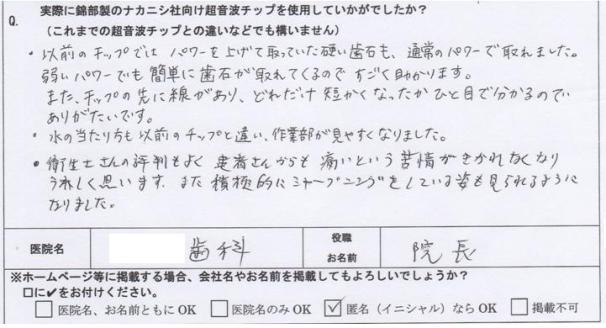 Q. 実際に錦部製のナカニシ社向け超音波チップを使用していかがでしたか？
（これまでの超音波チップとの違いなどでも構いません）
・以前のチップでは パワーを上げて取っていた硬い歯石も、通常のパワーで取れました。
弱いパワーでも簡単に歯石が取れてくるので すごく助かります。
また、チップの先に線があり、どれだけ 短かくなったか ひと目で分かるので、
ありがたいです。
・水の当たり方も 以前のチップと違い、作業部が見やすくなりました。
・衛生士さんの評判もよく 患者さんからも 痛いという 苦情が きかれなくなり
うれしく思います。また 積極的に シャープニングを している姿も 見られるように
なりました。
医院名 歯科 役職 お名前 院長
※ホームページ等に掲載する場合、会社名やお名前を掲載してもよろしいでしょうか？
口に✔をお付けください。
□ 医院名、お名前ともに OK □ 医院名のみ OK ☑ 匿名（イニシャル）なら OK □ 掲載不可